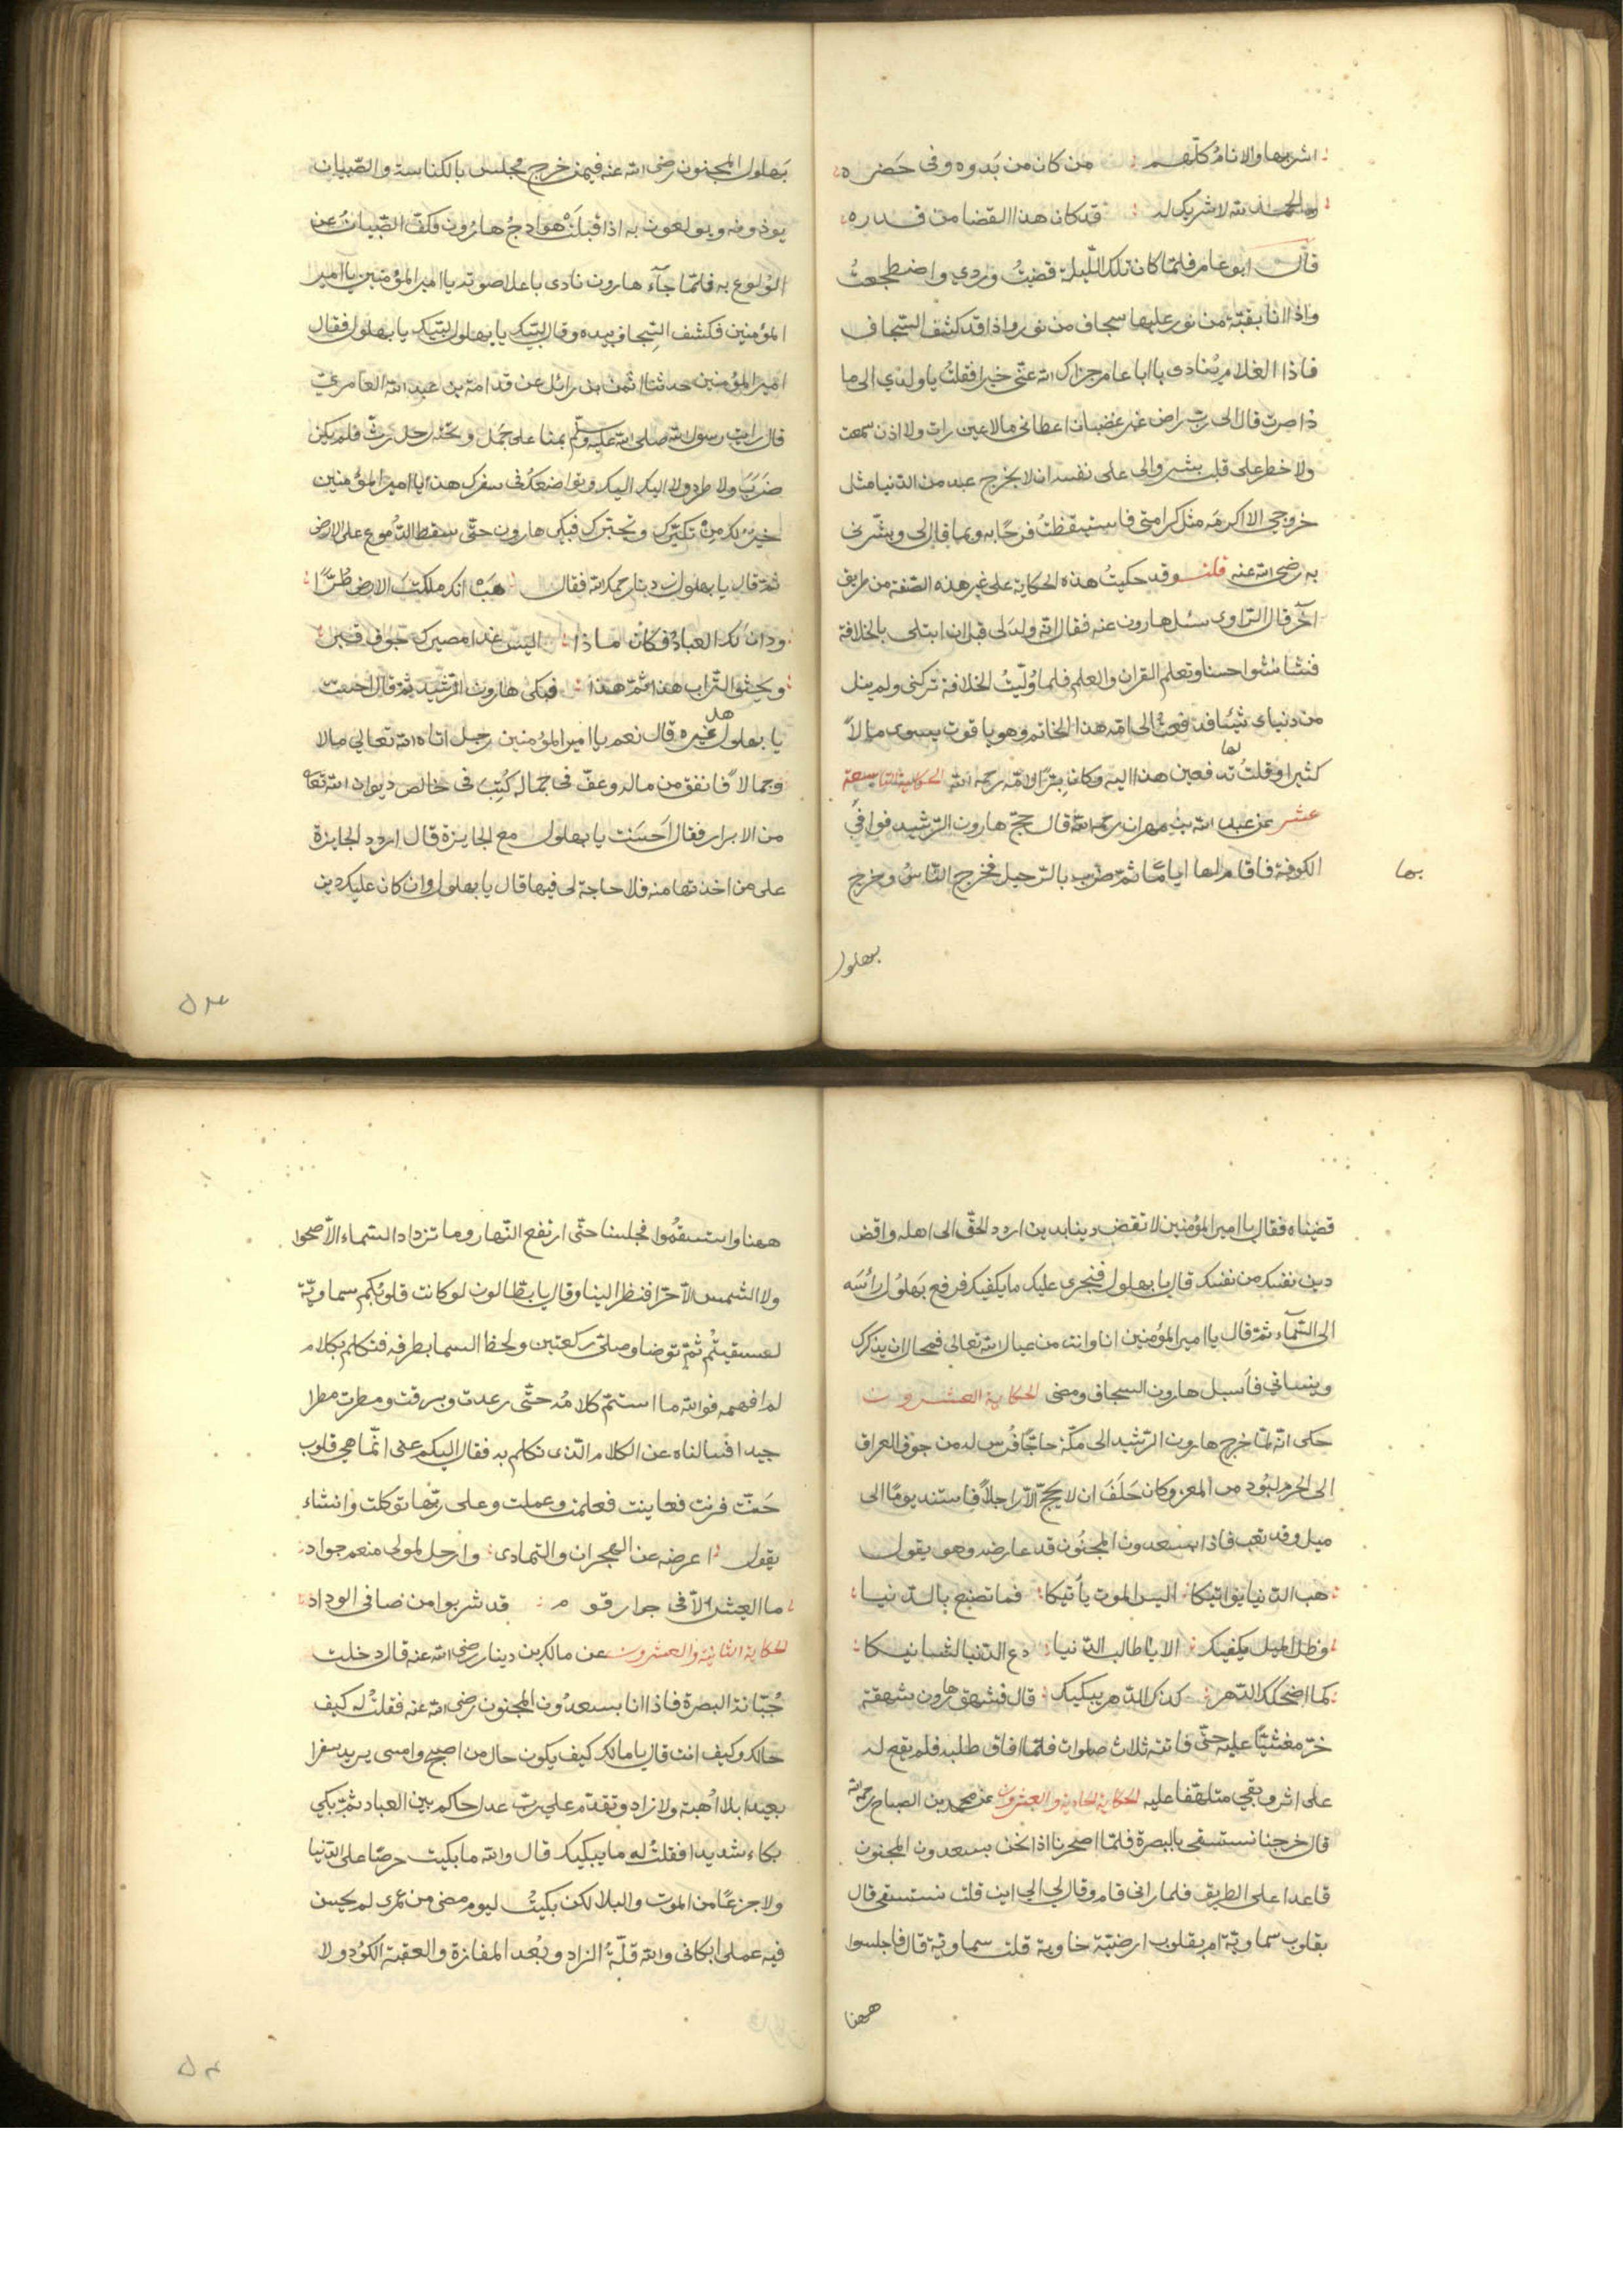 اشربها والانام كلهم من كان من بدوه وفى حضره
والحمد لله لا شريك له قد كان هذا القضا من قدره
قال ابو عامر فلمّا كان تلك اللّيلة قضيتُ وردي واضطجعتُ
واذا انا بقبّة من نور عليها سجاف من نور واذا قد كشف السّجاف
فاذا الغلام ينادى يا ابا عامر جزاك الله عنّى خيرا فقلتُ يا ولدي الى ما
ذا صرت قال الى ربّ راض غير غضبان اعطانى ما لا عين رات ولا اذن سمعت
ولا خطر على قلب بشر والى على نفسه ان لا يخرج عبد من الدّنيا مثل
خروجى الا اكرمه مثل كرامتى فاستيقظتُ فرحًا به وبما قال لى وبشّرنى
به رضى الله عنه قلت وقد حكيتُ هذه الحكاية على غير هذه الصّفة من طريق
آخر قال الرّاوى سئل هارون عنه فقال انّه ولد لى قبل ان ابتلى بالخلافة
فنشا نشوا حسنا وتعلم القران والعلم فلما وُلّيتُ الخلافة تركنى ولم ينل
من دنياى شيئا فدفعتُ الى امّه هذا الخاتم وهو ياقوت يسوى مالاً
كثيرا وقلتُ لها تدفعين هذا اليه وكان بِرًّا لامّه رحمه الله الحكاية التاسعة
عشر عن عبد الله بن مهران رحمه الله قال حجّ هارون الرّشيد فوافى
الكوفة فاقام بها ايامًا ثمّ ضرب بالرّحيل فخرج النّاسُ وخرج
بها
بهلول
بَهلول المجنون رضى الله عنه فيمن خرج فجلس بالكناسة والصّبيان
يوذونه ويولعون به اذا قبلتْ هوادجُ هارُون فكفّ الصّبيانُ عن
الوُلوع به فلمّا جآء هارون نادى باعلا صوته يا امير المؤمنين يا امير
المؤمنين فكشف السِّجاف بيده وقال لبّيك يا بهلول لبّيك يا بهلول فقال
امير المؤمنين حدثنا ايمن بن رائل عن قدامة بن عبد الله العامرىّ
قال رايت رسول الله صلى الله عليه وسلّم بمنا على جَمل وتحته رحل رثّ فلم يكن
ضَربٌ ولا طرد ولا اليك اليك وتواضعكُ فى سفرك هذا يا امير المؤمنين
خيرٌ لك مِنْ تكبّرك وتجبّرك فبكى هارون حتّى سقط الدّموع على الارض
ثمّ قال يا بهلول زدنا رحمك الله فقال هَبْ انك ملكتَ الارض طُرًّا
ودان لك العباد فكان ماذا اليس غدا مصيرك جوف قبر
ويحثو التّراب هذا ثمّ هذا فبكى هارون الرّشيد ثمّ قال احسنت
يا بهلول هل غيره قال نعم يا امير المؤمنين رجل اتاه الله تعالى مالا
وجمالاً فانفق من ماله وعفّ فى جماله كُتِبَ فى خالص ديوان الله تعا
من الابرار فقال اَحسَنت يا بهلول مع الجايزة قال اردد الجايزة
على من اخذتها منه فلا حاجة لى فيها قال يا بهلول وان كان عليك دين
٥٣
قضيناه فقال يا امير المؤمنين لا تقض دينا بدين اردد الحقّ الى اهله واقض
دين نفسك من نفسك قال يا بهلول فنجرى عليك ما يكفيك فرفع بَهلوُل رأسَه
الى السّمآء ثمّ قال يا امير المؤمنين انا وانت من عيال الله تعالى فمحال ان يذكرك
وينسانى فاَسبل هارون السجاف ومضى الحكاية العشرون
حكى انّه لمّا خرج هارون الرّشيد الى مكّة حاجًا فُرس له من جوف العراق
الى الحرم لبُود من المعز وكان حَلَفَ ان لا يحجّ الّا راجلاً فاستند يومًا الى
ميل وقد تعب فاذا بسعدون المجنُون قد عارضه وهو يقول
هب الدّنيا يواتيكا اليس الموت يأتيكا فما تصنع بالدّنيا
وظل الميل يكفيك الا يا طالب الدّنيا دع الدّنيا لشانيكا
كما اضحكك الدّهر كذلك الدّهر يبكيك قال فشهق هارون بشهقة
خرّ مغشيًّا عليه حتّى فاتته ثلاث صلوات فلمّا افاق طلبه فلم يقع له
على اثر وبقى متلهّفا عليه الحكاية الحادية والعشرون عن محمد بن الصباح رحمه الله
قال خرجنا نستسقى بالبصرة فلمّا اصحرنا اذا نحن بسعدون المجنون
قاعدا على الطريق فلما رانى قام وقال لى الى اين قلت نستسقى قال
بقلوب سماويّة ام بقلوب ارضيّة خاوية قلت سماويّة قال فاجلسوا
ههنا
ههنا واستسقُوا فجلسنا حتّى ارتفع النّهار وما تزداد السّماء الّا صحوا
ولا الشّمس الّا حرّا فنظر الينا وقال يا بطّالون لو كانت قلوبُكم سماويّة
لسقيتُم ثمّ توضا وصلّى ركعتين ولحظ السما بطرفه فتكلم بكلام
لم افهمه فوالله ما استتمّ كلامُه حتّى رعدت وبرقت ومطرت مطرا
جيدا فسالناه عن الكلام الذى تكلم به فقال اليكم عنى انّما هى قلوب
حَنّت فرنت فعاينت فعلمت وعملت وعلى ربّها توكلت وانشاء
يقول اعرضه عن الهجران والتمادى وارحل لمولى منعم جواد
ما العيش الاّ فى جوار قوم قد شربوا من صافى الوداد
الحكاية الثانية والعشرون عن مالك بن دينار رضى الله عنه قال دخلت
جُبّانة البصرة فاذا انا بسعدُون المجنون رضى الله عنه فقلتُ له كيف
حالك وكيف انت قال يا مالك كيف يكون حال من اصبح وامسى يريد سفرا
بعيدا بلا اُهبة ولا زاد وتقدّم على ربّ عدل حاكم بين العباد ثمّ بكى
بكاء شديدا فقلتُ له ما يبكيك قال والله ما بكيت حرصًا على الدّنيا
ولا جزعًا من الموت والبلا لكن بكيتُ ليوم مضى من عمرى لم يحسن
فيه عملى ابكانى والله قلّةُ الزاد وبُعد المفازة والعقبة الكؤد ولا
٥٤